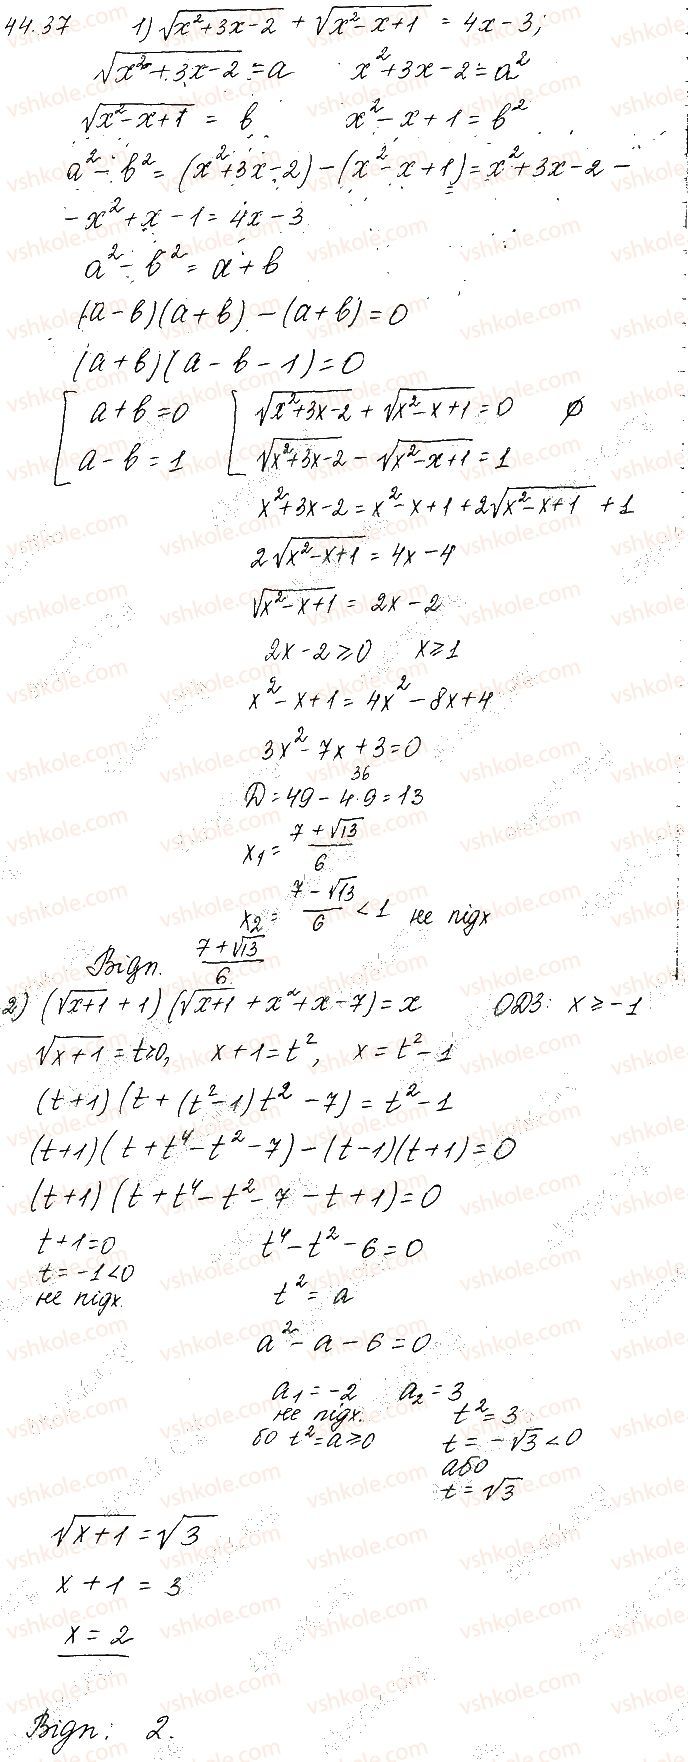 44.37 1) √(x²+3x-2) + √(x²-x+1) = 4x-3;
√(x²+3x-2) = a x²+3x-2=a²
√(x²-x+1) = b x²-x+1=b²
a²-b²=(x²+3x-2)-(x²-x+1)=x²+3x-2-
-x²+x-1=4x-3
a²-b²=a+b
(a-b)(a+b)-(a+b)=0
(a+b)(a-b-1)=0
[ a+b=0 [ √(x²+3x-2)+√(x²-x+1)=0 ∅
a-b=1 √(x²+3x-2)-√(x²-x+1)=1
x²+3x-2=x²-x+1+2√(x²-x+1)+1
2√(x²-x+1)=4x-4
√(x²-x+1)=2x-2
2x-2≥0 x≥1
x²-x+1=4x²-8x+4
3x²-7x+3=0
36
D=49-4·9=13
x₁=(7+√13)/6
x₂=(7-√13)/6<1 не підх
Відп. (7+√13)/6
2) (√(x+1)+1)(√(x+1)+x²+x-7)=x ОДЗ: x≥-1
√(x+1)=t≥0, x+1=t², x=t²-1
(t+1)(t+(t²-1)t²-7)=t²-1
(t+1)(t+t⁴-t²-7)-(t-1)(t+1)=0
(t+1)(t+t⁴-t²-7-t+1)=0
t+1=0 t⁴-t²-6=0
t=-1<0
не підх. t²=a
a²-a-6=0
a₁=-2 a₂=3
не підх. t²=3
бо t²=a≥0 t=-√3<0
або
t=√3
√(x+1)=√3
x+1=3
x=2
Відп: 2.